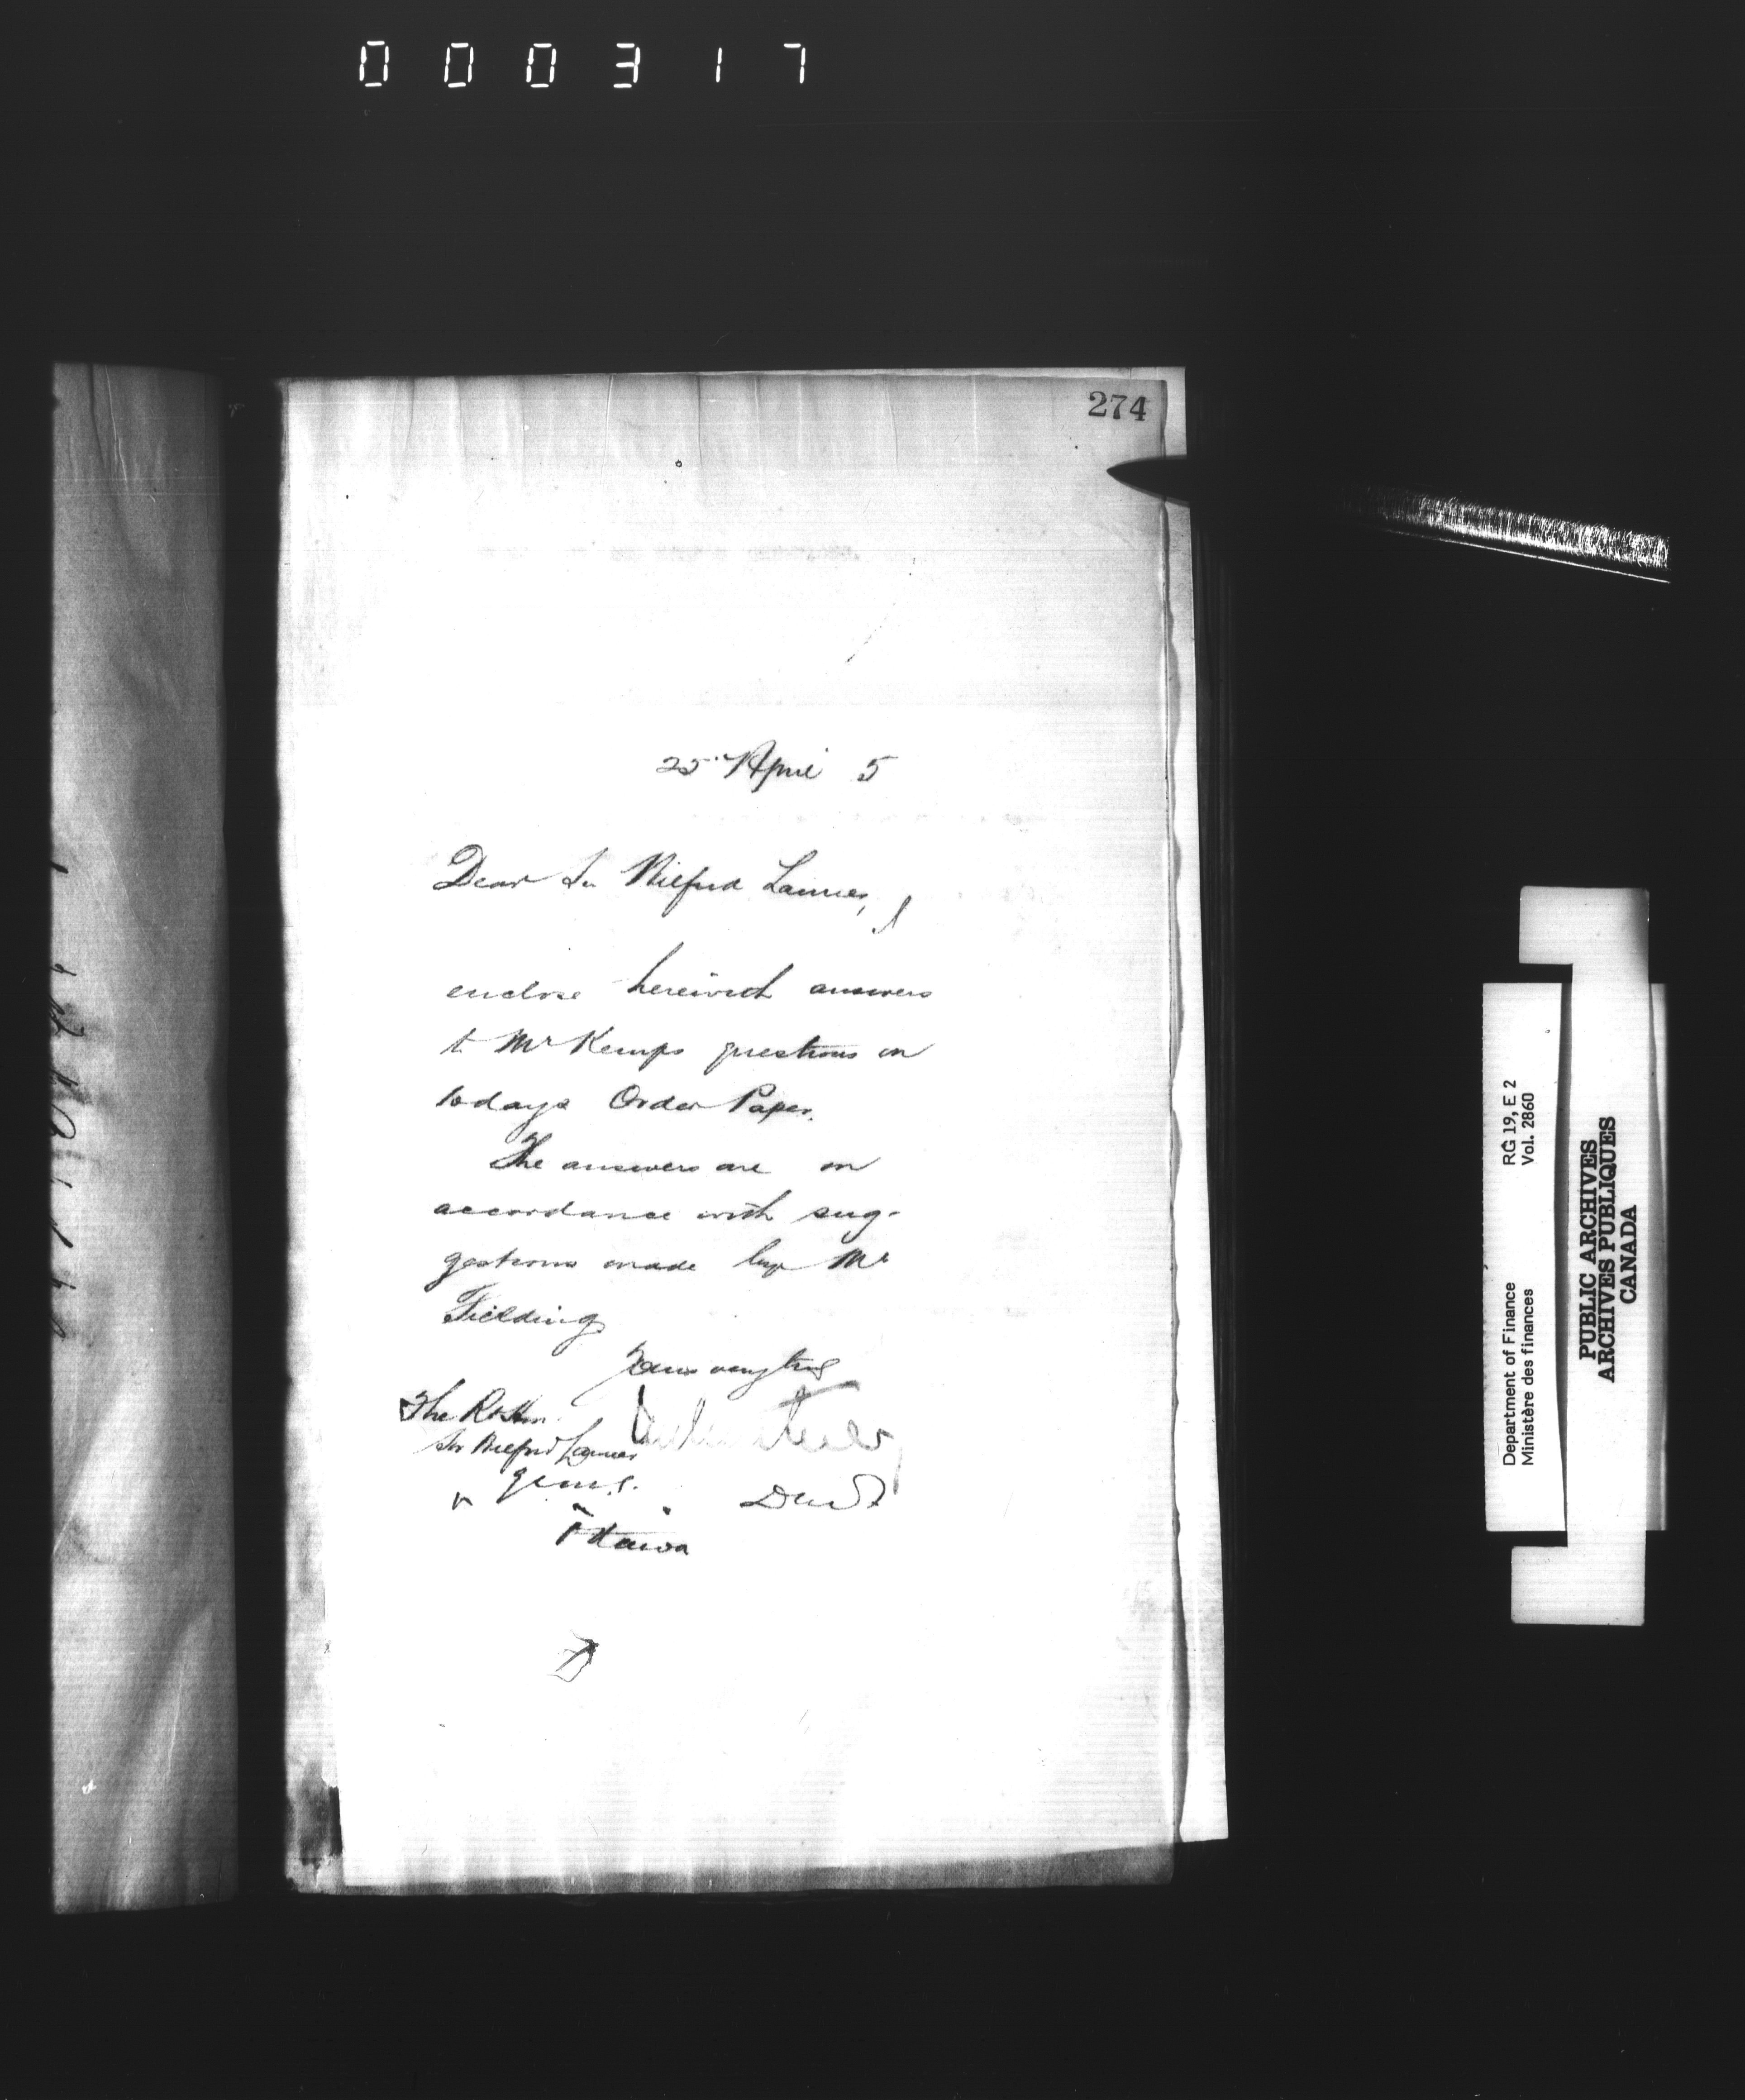 000317
274
25 April 5
Dear Sir Wilfrid Laurier,
I
enclose herewith answers
to Mr Kemps questions on
todays Order Paper.
The answers are in
accordance with sug-
gestions made by Mr
Fielding
Yours very truly
The Rt Hon.
Sir Wilfrid Laurier
G.C.M.G.
Ottawa
RG 19, E 2
Vol. 2860
Department of Finance
Ministère des finances
PUBLIC ARCHIVES
ARCHIVES PUBLIQUES
CANADA